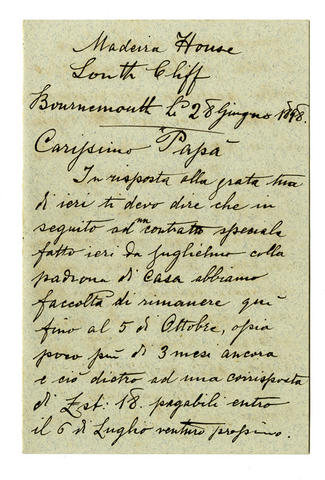 Madeira House
South Cliff
Bournemouth li 28 Giugno 1898.
Carissimo Papà
In risposta alla grata tua
di ieri ti devo dire che in
seguito ad un contratto speciale
fatto ieri da Guglielmo colla
padrona di casa abbiamo
facoltà di rimanere quì
fino al 5 di Ottobre, ossia
poco più di 3 mesi ancora
e ciò dietro ad una corrisposta
di £st: 18. pagabili entro
il 6 di Luglio venturo prossimo.